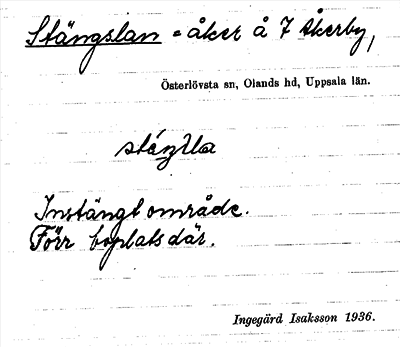 Stängslan = åker å 7 Åkerby,
Österlövsta sn, Olands hd, Uppsala län.
Instängt område.
Förr boplats där.
Ingegärd Isaksson 1936.